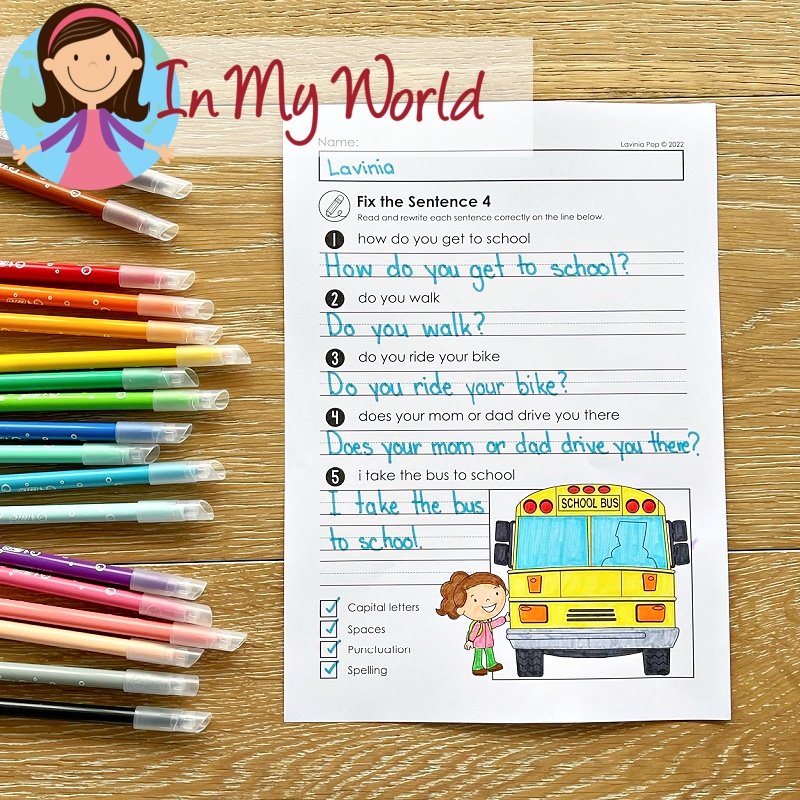 In My World
Name:
Lavinia Pop © 2022
Lavinia
Fix the Sentence 4
Read and rewrite each sentence correctly on the line below.
1 how do you get to school
How do you get to school?
2 do you walk
Do you walk?
3 do you ride your bike
Do you ride your bike?
4 does your mom or dad drive you there
Does your mom or dad drive you there?
5 i take the bus to school
I take the bus
to school.
SCHOOL BUS
Capital letters
Spaces
Punctuation
Spelling